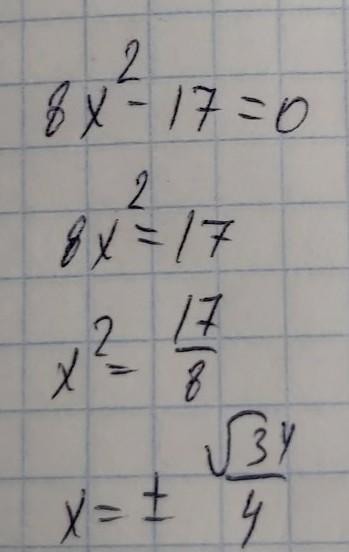 8x² - 17 = 0
8x² = 17
x² = 17/8
x = ± √34/4